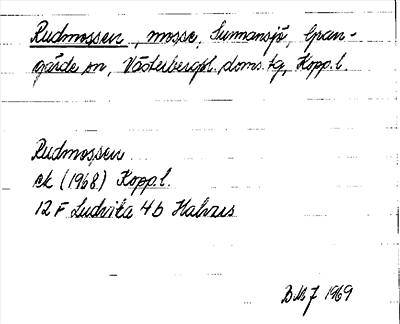 Rudmossen, mosse, Sunnansjö, Gran-
gärde sn, Västerbergsl. doms. tg, Kopp. l.
Rudmossen
ek (1968) Kopp. l.
12 F Ludvika 4b Halvrus
BMJ 1969